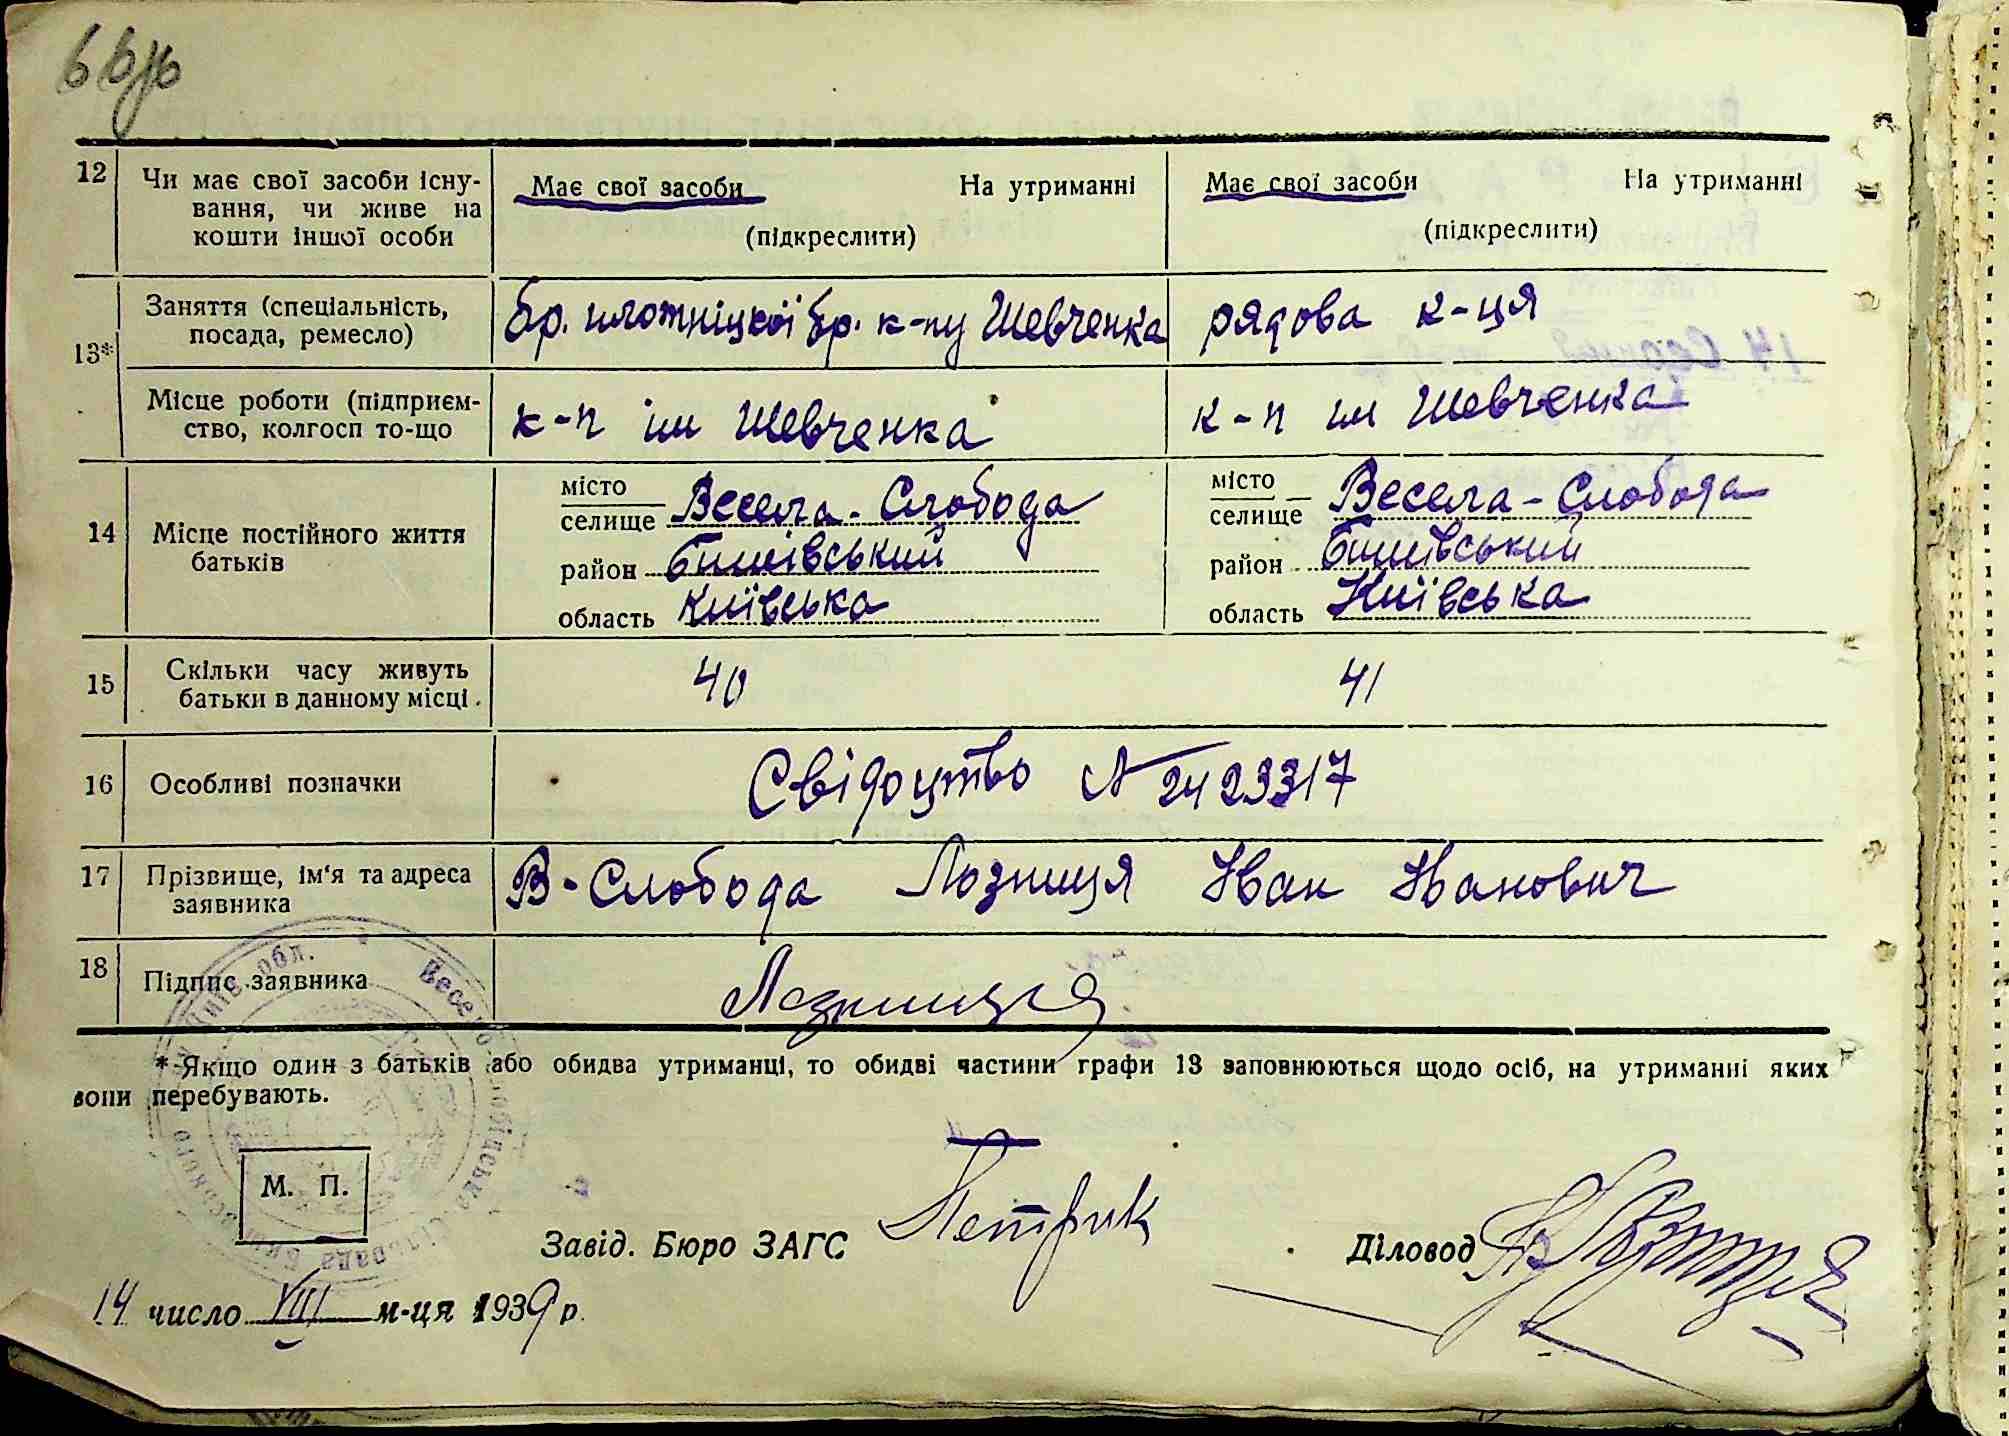 12 Чи має свої засоби існу-
вання, чи живе на
кошти іншої особи
Має свої засоби На утриманні
(підкреслити)
Має свої засоби На утриманні
(підкреслити)
13* Заняття (спеціальність,
посада, ремесло)
бр. пложніцкої бр. к-пу Шевченка
рядова к-ця
Місце роботи (підприєм-
ство, колгосп то-що
к-п ім Шевченка
к-п ім Шевченка
14 Місце постійного життя
батьків
місто
селище Весела-Слобода
район Бишівський
область Київська
місто
селище Весела-Слобода
район Бишівський
область Київська
15 Скільки часу живуть
батьки в данному місці.
40
41
16 Особливі позначки
Свідоцтво № 2423317
17 Прізвище, ім'я та адреса
заявника
В-Слобода Лозниця Іван Іванович
18 Підпис заявника
Лозниця
* Якщо один з батьків або обидва утриманці, то обидві частини графи 13 заповнюються щодо осіб, на утриманні яких
вони перебувають.
М. П.
Завід. Бюро ЗАГС Петрик
Діловод
14 число VIII м-ця 1939 р.